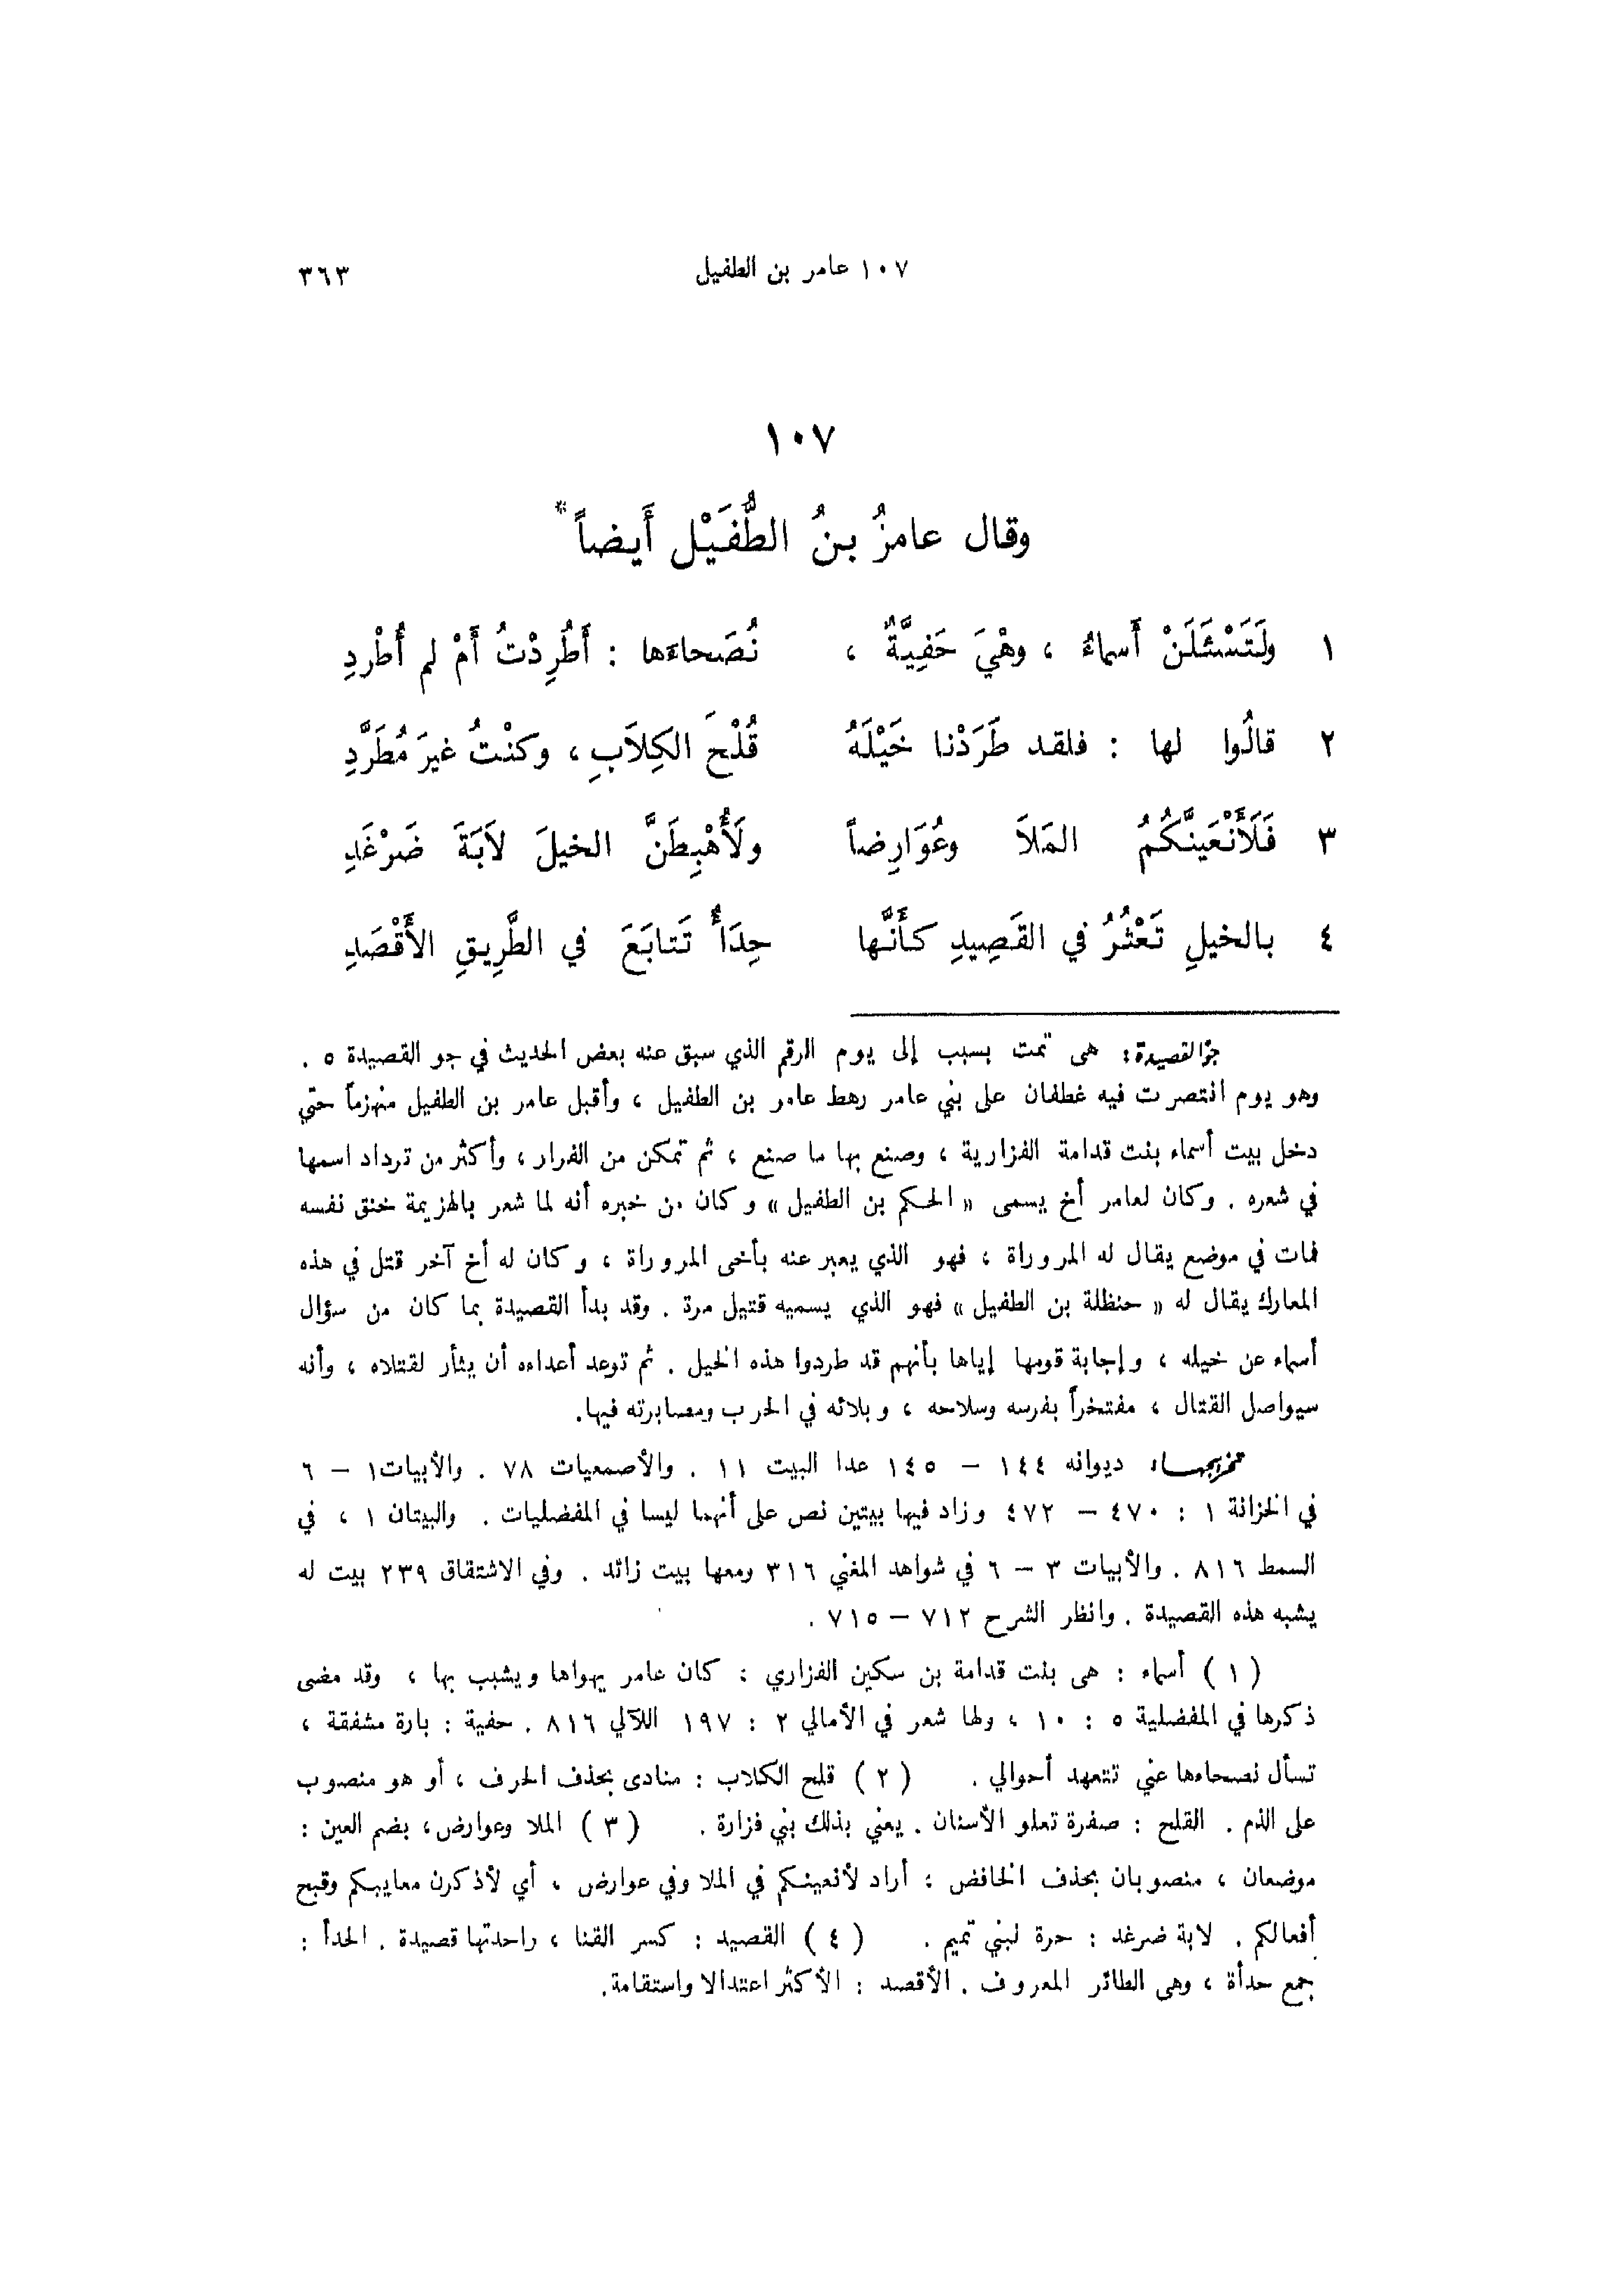 ١٠٧ عامر بن الطفيل ٣٦٣
١٠٧
وقال عامرُ بنُ الطُّفَيْل أَيضاً*
١ ولَتَسْئَلَنْ أَسماءُ ، وهْيَ حَفِيَّةٌ ، نُصَحاءَها : أَطُرِدْتُ أَمْ لم أُطْردِ
٢ قالُوا لها : فلقد طَرَدْنا خَيْلَهُ قُلْحَ الكِلاَبِ ، وكنْتُ غيرَ مُطَرَّدِ
٣ فَلَأَنْعَيَنَّكُمُ المَلاَ وعُوَارِضاً ولَأُهْبِطَنَّ الخيلَ لاَبَةَ ضَرْغَدِ
٤ بالخيلِ تَعْثُرُ في القَصِيدِ كأَنَّها حِدَأٌ تَتابَعَ في الطَّرِيقِ الأَقْصَدِ
جوّ القصيدة: هى تمت بسبب إلى يوم الرقم الذي سبق عنه بعض الحديث في جو القصيدة ٥ .
وهو يوم انتصرت فيه غطفان على بني عامر رهط عامر بن الطفيل ، وأقبل عامر بن الطفيل منهزماً حتى
دخل بيت أسماء بنت قدامة الفزارية ، وصنع بها ما صنع ، ثم تمكن من الفرار ، وأكثر من ترداد اسمها
في شعره . وكان لعامر أخ يسمى « الحكم بن الطفيل » وكان من خبره أنه لما شعر بالهزيمة خنق نفسه
فمات في موضع يقال له المروراة ، فهو الذي يعبر عنه بأخى المروراة ، وكان له أخ آخر قتل في هذه
المعارك يقال له « حنظلة بن الطفيل » فهو الذي يسميه قتيل مرة . وقد بدأ القصيدة بما كان من سؤال
أسماء عن خيله ، وإجابة قومها إياها بأنهم قد طردوا هذه الخيل . ثم توعد أعداءه أن يثأر لقتلاه ، وأنه
سيواصل القتال ، مفتخراً بفرسه وسلاحه ، وبلائه في الحرب ومصابرته فيها.
تخريجها: ديوانه ١٤٤ – ١٤٥ عدا البيت ١١ . والأصمعيات ٧٨ . والأبيات ١ – ٦
في الخزانة ١ : ٤٧٠ – ٤٧٢ وزاد فيها بيتين نص على أنهما ليسا في المفضليات . والبيتان ١ ، في
السمط ٨١٦ . والأبيات ٣ – ٦ في شواهد المغني ٣١٦ ومعها بيت زائد . وفي الاشتقاق ٢٣٩ بيت له
يشبه هذه القصيدة . وانظر الشرح ٧١٢ – ٧١٥ .
( ١ ) أسماء : هى بنت قدامة بن سكين الفزاري : كان عامر يهواها ويشبب بها ، وقد مضى
ذكرها في المفضلية ٥ : ١٠ ، ولها شعر في الأمالي ٢ : ١٩٧ اللآلي ٨١٦ . حفية : بارة مشفقة ،
تسأل نصحاءها عني تتعهد أحوالي . ( ٢ ) قلح الكلاب : منادى بحذف الحرف ، أو هو منصوب
على الذم . القلح : صفرة تعلو الأسنان . يعني بذلك بني فزارة . ( ٣ ) الملا وعوارض، بضم العين :
موضعان ، منصوبان بحذف الخافض : أراد لأنعينكم في الملا وفي عوارض ، أي لأذكرن معايبكم وقبح
أفعالكم . لابة ضرغد : حرة لبني تميم . ( ٤ ) القصيد : كسر القنا ، واحدتها قصيدة . الحدأ :
جمع حدأة ، وهى الطائر المعروف . الأقصد : الأكثر اعتدالا واستقامة.